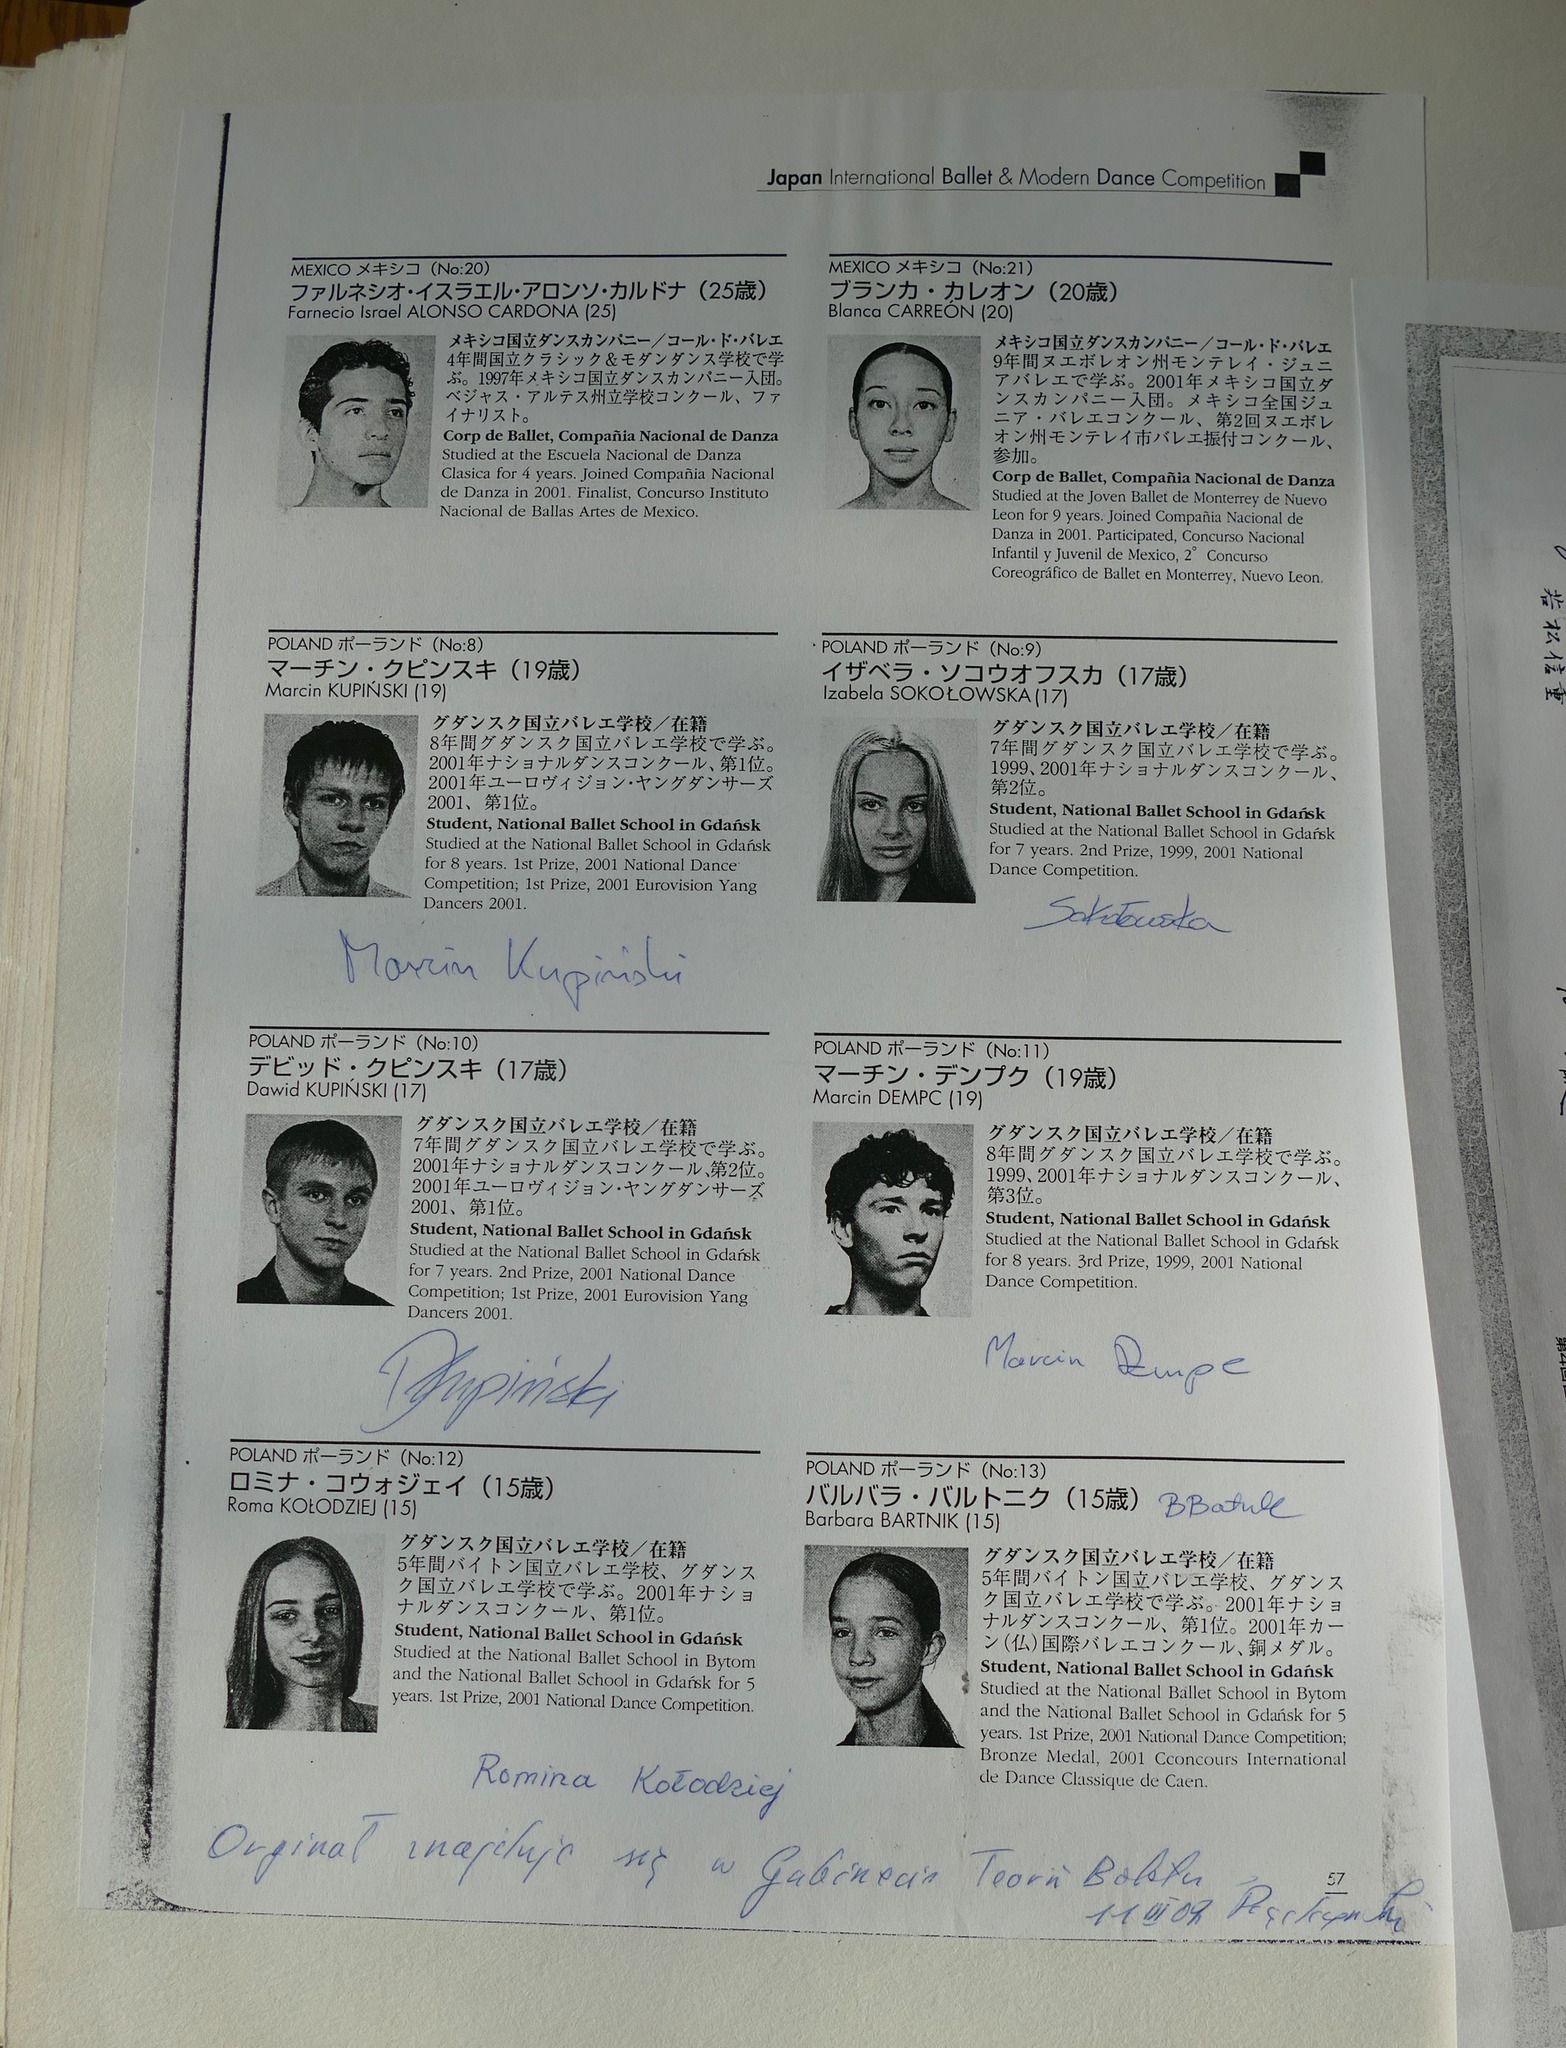 Japan International Ballet & Modern Dance Competition
MEXICO メキシコ（No:20）
ファルネシオ・イスラエル・アロンソ・カルドナ（25歳）
Farnecio Israel ALONSO CARDONA (25)
メキシコ国立ダンスカンパニー／コール・ド・バレエ
4年間国立クラシック＆モダンダンス学校で学
ぶ。1997年メキシコ国立ダンスカンパニー入団。
ベジャス・アルテス州立学校コンクール、ファ
イナリスト。
Corp de Ballet, Compañia Nacional de Danza
Studied at the Escuela Nacional de Danza
Clasica for 4 years. Joined Compañia Nacional
de Danza in 2001. Finalist, Concurso Instituto
Nacional de Ballas Artes de Mexico.
MEXICO メキシコ（No:21）
ブランカ・カレオン（20歳）
Blanca CARREÓN (20)
メキシコ国立ダンスカンパニー／コール・ド・バレエ
9年間ヌエボレオン州モンテレイ・ジュニ
アバレエで学ぶ。2001年メキシコ国立ダ
ンスカンパニー入団。メキシコ全国ジュ
ニア・バレエコンクール、第2回ヌエボレ
オン州モンテレイ市バレエ振付コンクール、
参加。
Corp de Ballet, Compañia Nacional de Danza
Studied at the Joven Ballet de Monterrey de Nuevo
Leon for 9 years. Joined Compañia Nacional de
Danza in 2001. Participated, Concurso Nacional
Infantil y Juvenil de Mexico, 2° Concurso
Coreográfico de Ballet en Monterrey, Nuevo Leon.
POLAND ポーランド（No:8）
マーチン・クピンスキ（19歳）
Marcin KUPIŃSKI (19)
グダンスク国立バレエ学校／在籍
8年間グダンスク国立バレエ学校で学ぶ。
2001年ナショナルダンスコンクール、第1位。
2001年ユーロヴィジョン・ヤングダンサーズ
2001、第1位。
Student, National Ballet School in Gdańsk
Studied at the National Ballet School in Gdańsk
for 8 years. 1st Prize, 2001 National Dance
Competition; 1st Prize, 2001 Eurovision Yang
Dancers 2001.
Marcin Kupiński
POLAND ポーランド（No:9）
イザベラ・ソコウオフスカ（17歳）
Izabela SOKOŁOWSKA (17)
グダンスク国立バレエ学校／在籍
7年間グダンスク国立バレエ学校で学ぶ。
1999、2001年ナショナルダンスコンクール、
第2位。
Student, National Ballet School in Gdańsk
Studied at the National Ballet School in Gdańsk
for 7 years. 2nd Prize, 1999, 2001 National
Dance Competition.
Sokołowska
POLAND ポーランド（No:10）
デビッド・クピンスキ（17歳）
Dawid KUPIŃSKI (17)
グダンスク国立バレエ学校／在籍
7年間グダンスク国立バレエ学校で学ぶ。
2001年ナショナルダンスコンクール、第2位。
2001年ユーロヴィジョン・ヤングダンサーズ
2001、第1位。
Student, National Ballet School in Gdańsk
Studied at the National Ballet School in Gdańsk
for 7 years. 2nd Prize, 2001 National Dance
Competition; 1st Prize, 2001 Eurovision Yang
Dancers 2001.
DKupiński
POLAND ポーランド（No:11）
マーチン・デンプク（19歳）
Marcin DEMPC (19)
グダンスク国立バレエ学校／在籍
8年間グダンスク国立バレエ学校で学ぶ。
1999、2001年ナショナルダンスコンクール、
第3位。
Student, National Ballet School in Gdańsk
Studied at the National Ballet School in Gdańsk
for 8 years. 3rd Prize, 1999, 2001 National
Dance Competition.
Marcin Dempc
POLAND ポーランド（No:12）
ロミナ・コウォジェイ（15歳）
Roma KOŁODZIEJ (15)
グダンスク国立バレエ学校／在籍
5年間バイトン国立バレエ学校、グダンス
ク国立バレエ学校で学ぶ。2001年ナショ
ナルダンスコンクール、第1位。
Student, National Ballet School in Gdańsk
Studied at the National Ballet School in Bytom
and the National Ballet School in Gdańsk for 5
years. 1st Prize, 2001 National Dance Competition.
Romina Kołodziej
POLAND ポーランド（No:13）
バルバラ・バルトニク（15歳）
BBartnik
Barbara BARTNIK (15)
グダンスク国立バレエ学校／在籍
5年間バイトン国立バレエ学校、グダンス
ク国立バレエ学校で学ぶ。2001年ナショ
ナルダンスコンクール、第1位。2001年カー
ン（仏）国際バレエコンクール、銅メダル。
Student, National Ballet School in Gdańsk
Studied at the National Ballet School in Bytom
and the National Ballet School in Gdańsk for 5
years. 1st Prize, 2001 National Dance Competition;
Bronze Medal, 2001 Cconcours International
de Dance Classique de Caen.
Orginał znajduje się w Gabinecie Teorii Baletu
57
11 III 02
若松信重